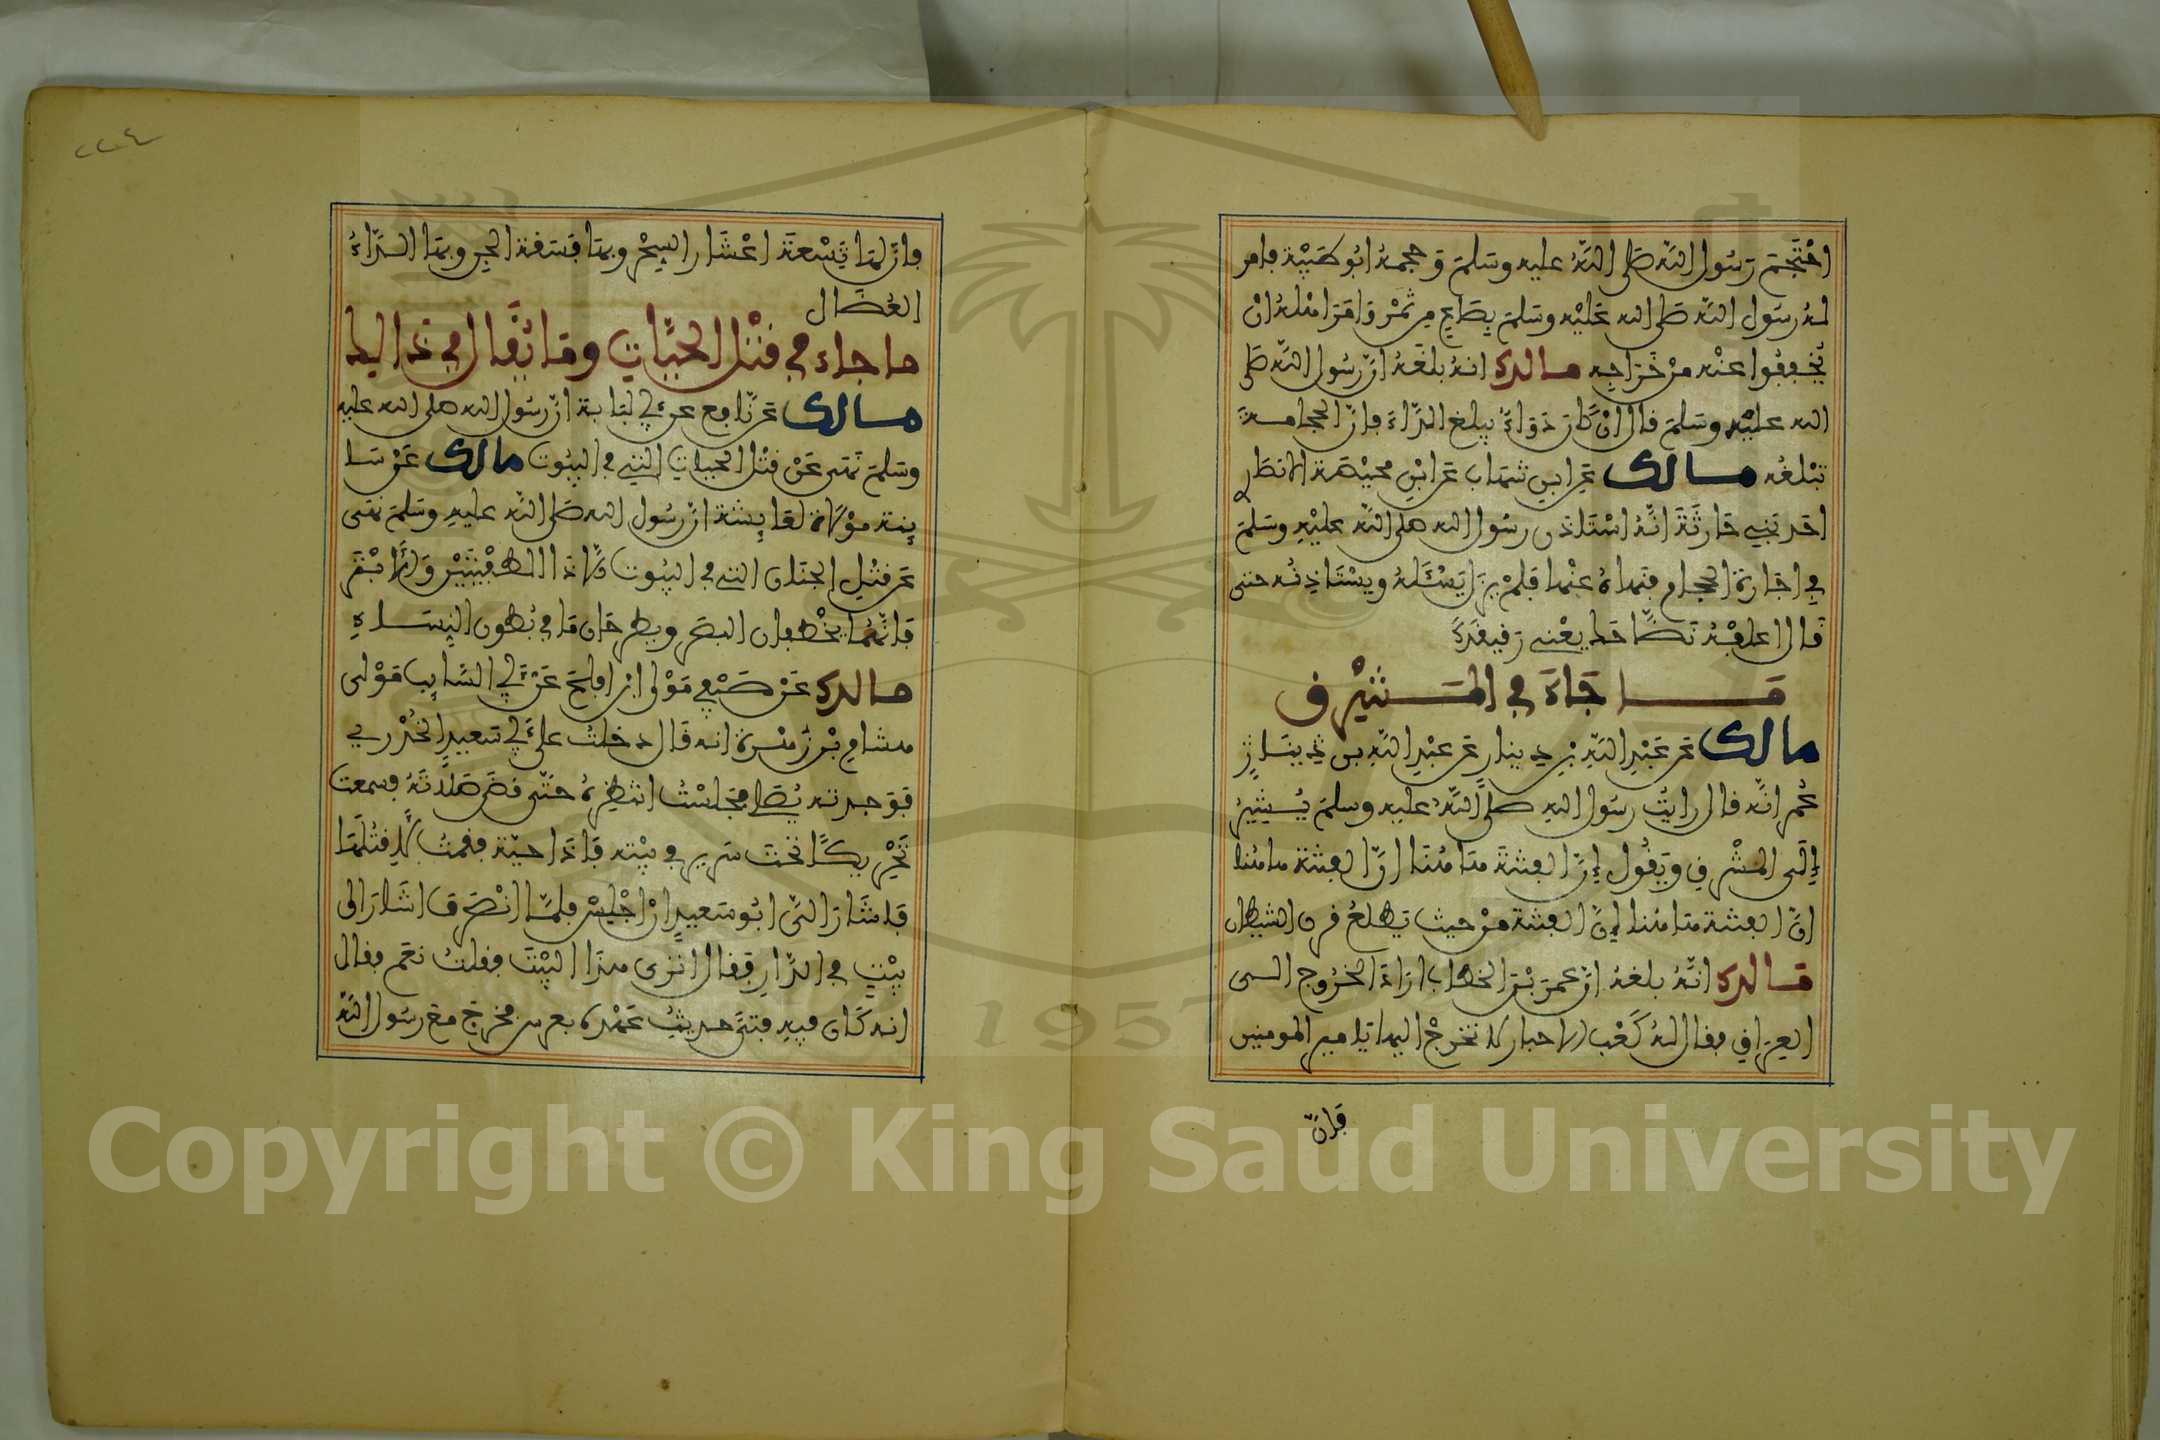 احْتَجَمَ رَسُول اللَّه صَلى اللَّهُ عليه وسَلمَ وَحجمهُ ابُو طَيْبة فامر
لهُ رسُول اللَّه صَلى الله عَلَيْه وسَلمَ بِصَاعٍ مِن تَمْر وَامَرَ اهْلهُ انْ
يُخَففُوا عنْه مِنْ خَرَاجِه مالك انهُ بلغَهُ انّ رسُول اللَّه صَلى
الله عليْهِ وسَلمَ قال انْ كَانَ دَوَاءٌ يبلغ الدَّاءَ فانّ الحجامة
تبْلغُه مالك عَنِ ابنِ شهاب عَنِ ابْنِ محيْصَة الانصَار
احَد بَنِي حَارثَةَ انَّهُ اسْتَاذن رسُول الله صلى اللَّه عليْهِ وسَلمَ
فِي اجَارة الحجام فنهاهُ عنْها فلمْ يزَل يَسْئَلهُ ويسْتَاذِنُه حتى
قَال اعلفْهُ نُضَّاحَك يعْني رَقيقَكَ
مَا جَاءَ فِي المَشْرِق
مالك عَن عَبْدِ اللَّه بْنِ دِينارٍ عَن عبْدِ اللَّهِ بن دِينَارٍ
عُمر انَّه قال رايْتُ رسُول اللهِ صلَّى اللَّهُ عليه وسلمَ يُشيرُ
إِلَى المشْرِقِ ويَقُول إِنَّ الفِتْنَةَ هَا هُنَا انّ الفِتْنَة هاهُنا
انّ الفِتْنة هَا هُنا إِنَّ الفتنة مِنْ حيث يَطلعُ قرن الشيطان
مالك انَّهُ بلغهُ انّ عمرَ بْنَ الخطاب ارَادَ الخُرُوج الى
العِرَاقِ فقال لهُ كَعْب الاحبار لا تخرجْ اليها يا امير المومنين
فَإنّ
فانّ بها تِسْعَة اعْشَار السِحْر وبها فسَقة الجِن وبها الدَّاءُ
العُضَال
ما جاء في قتْل الحيَّات وما يُقَال في ذالك
مالك عَن نَّافع عن ابي لبَابة انّ رسُول الله صلى الله عليه
وسَلمَ نَهَى عَنْ قتْل الحيات التي في البيُوت مالك عَنْ سَا
يِبة موْلاة لعَايِشة انّ رسُول الله صَلى اللَّه عليهِ وسَلمَ نهَى
عَن قتْلِ الجنَّان التي في البيُوت إلا ذا الطفْيتَيْن وَالابْتَر
فانَّهُما يخْطفان البصَر ويطرحَان مَا في بُطون النِسَاءِ
مالك عَنْ صَيْفِي مَوْلى ابن افلحَ عَنْ ابي السَّايِب مَوْلى
هشامِ بْنِ زُهْرة انه قَال دخلتُ على ابي سَعيدٍ الخُدْرِي
فوَجدته يُصَلي فجَلسْتُ انتظِرهُ حَتَّى قضَى صَلاَتهُ فسمعت
تَحْرِيكًا تحْتَ سَرِير فِي بيْته فاذَا حيّة فقمْتُ لأقْتُلهَا
فاشَارَ الَيَّ ابُو سَعيدٍ انْ اجْلِسْ فلمَّا انْصَرف اشَارَ الى
بيْتٍ في الدَّارِ فقال اتَرى هذَا البيْتَ فقلتُ نعَم فقال
انه كَان فِيهِ فتىً حديثُ عَهْدٍ بعرس فخرج مَعَ رَسُول اللَّه
Copyright © King Saud University
1957